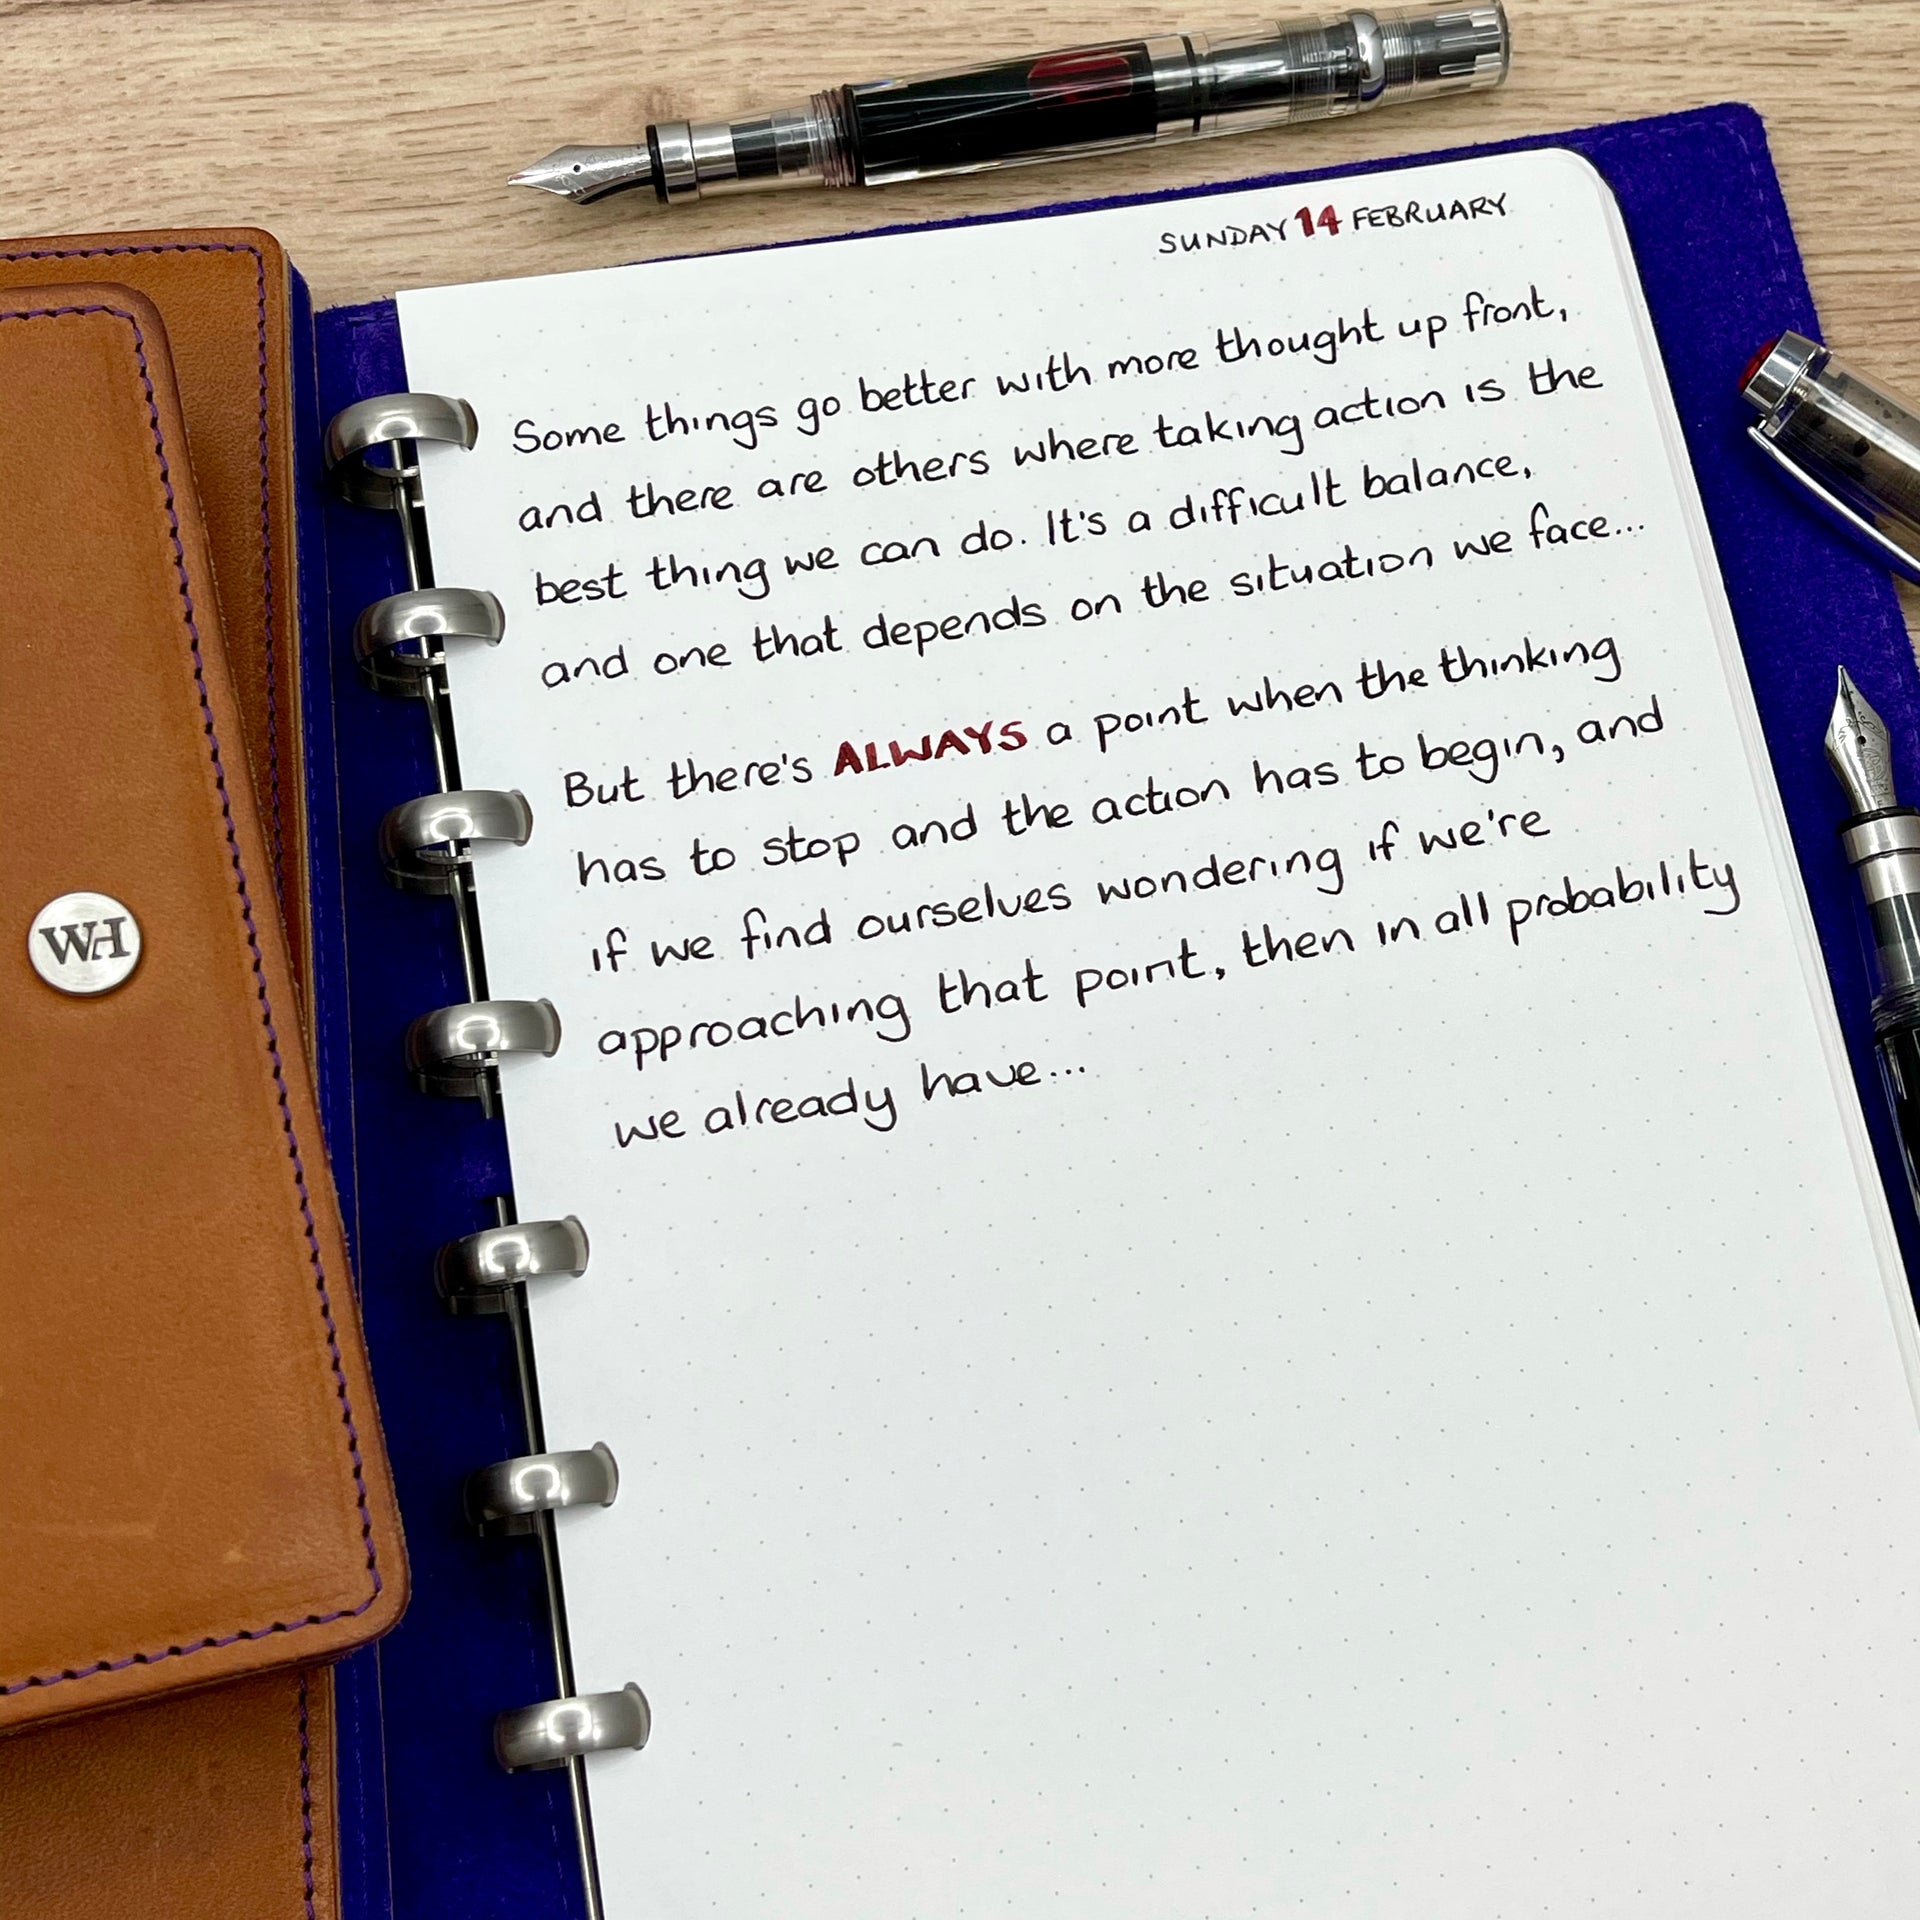 SUNDAY 14 FEBRUARY
Some things go better with more thought up front,
and there are others where taking action is the
best thing we can do. It's a difficult balance,
and one that depends on the situation we face...
But there's ALWAYS a point when the thinking
has to stop and the action has to begin, and
if we find ourselves wondering if we're
approaching that point, then in all probability
we already have...
WH